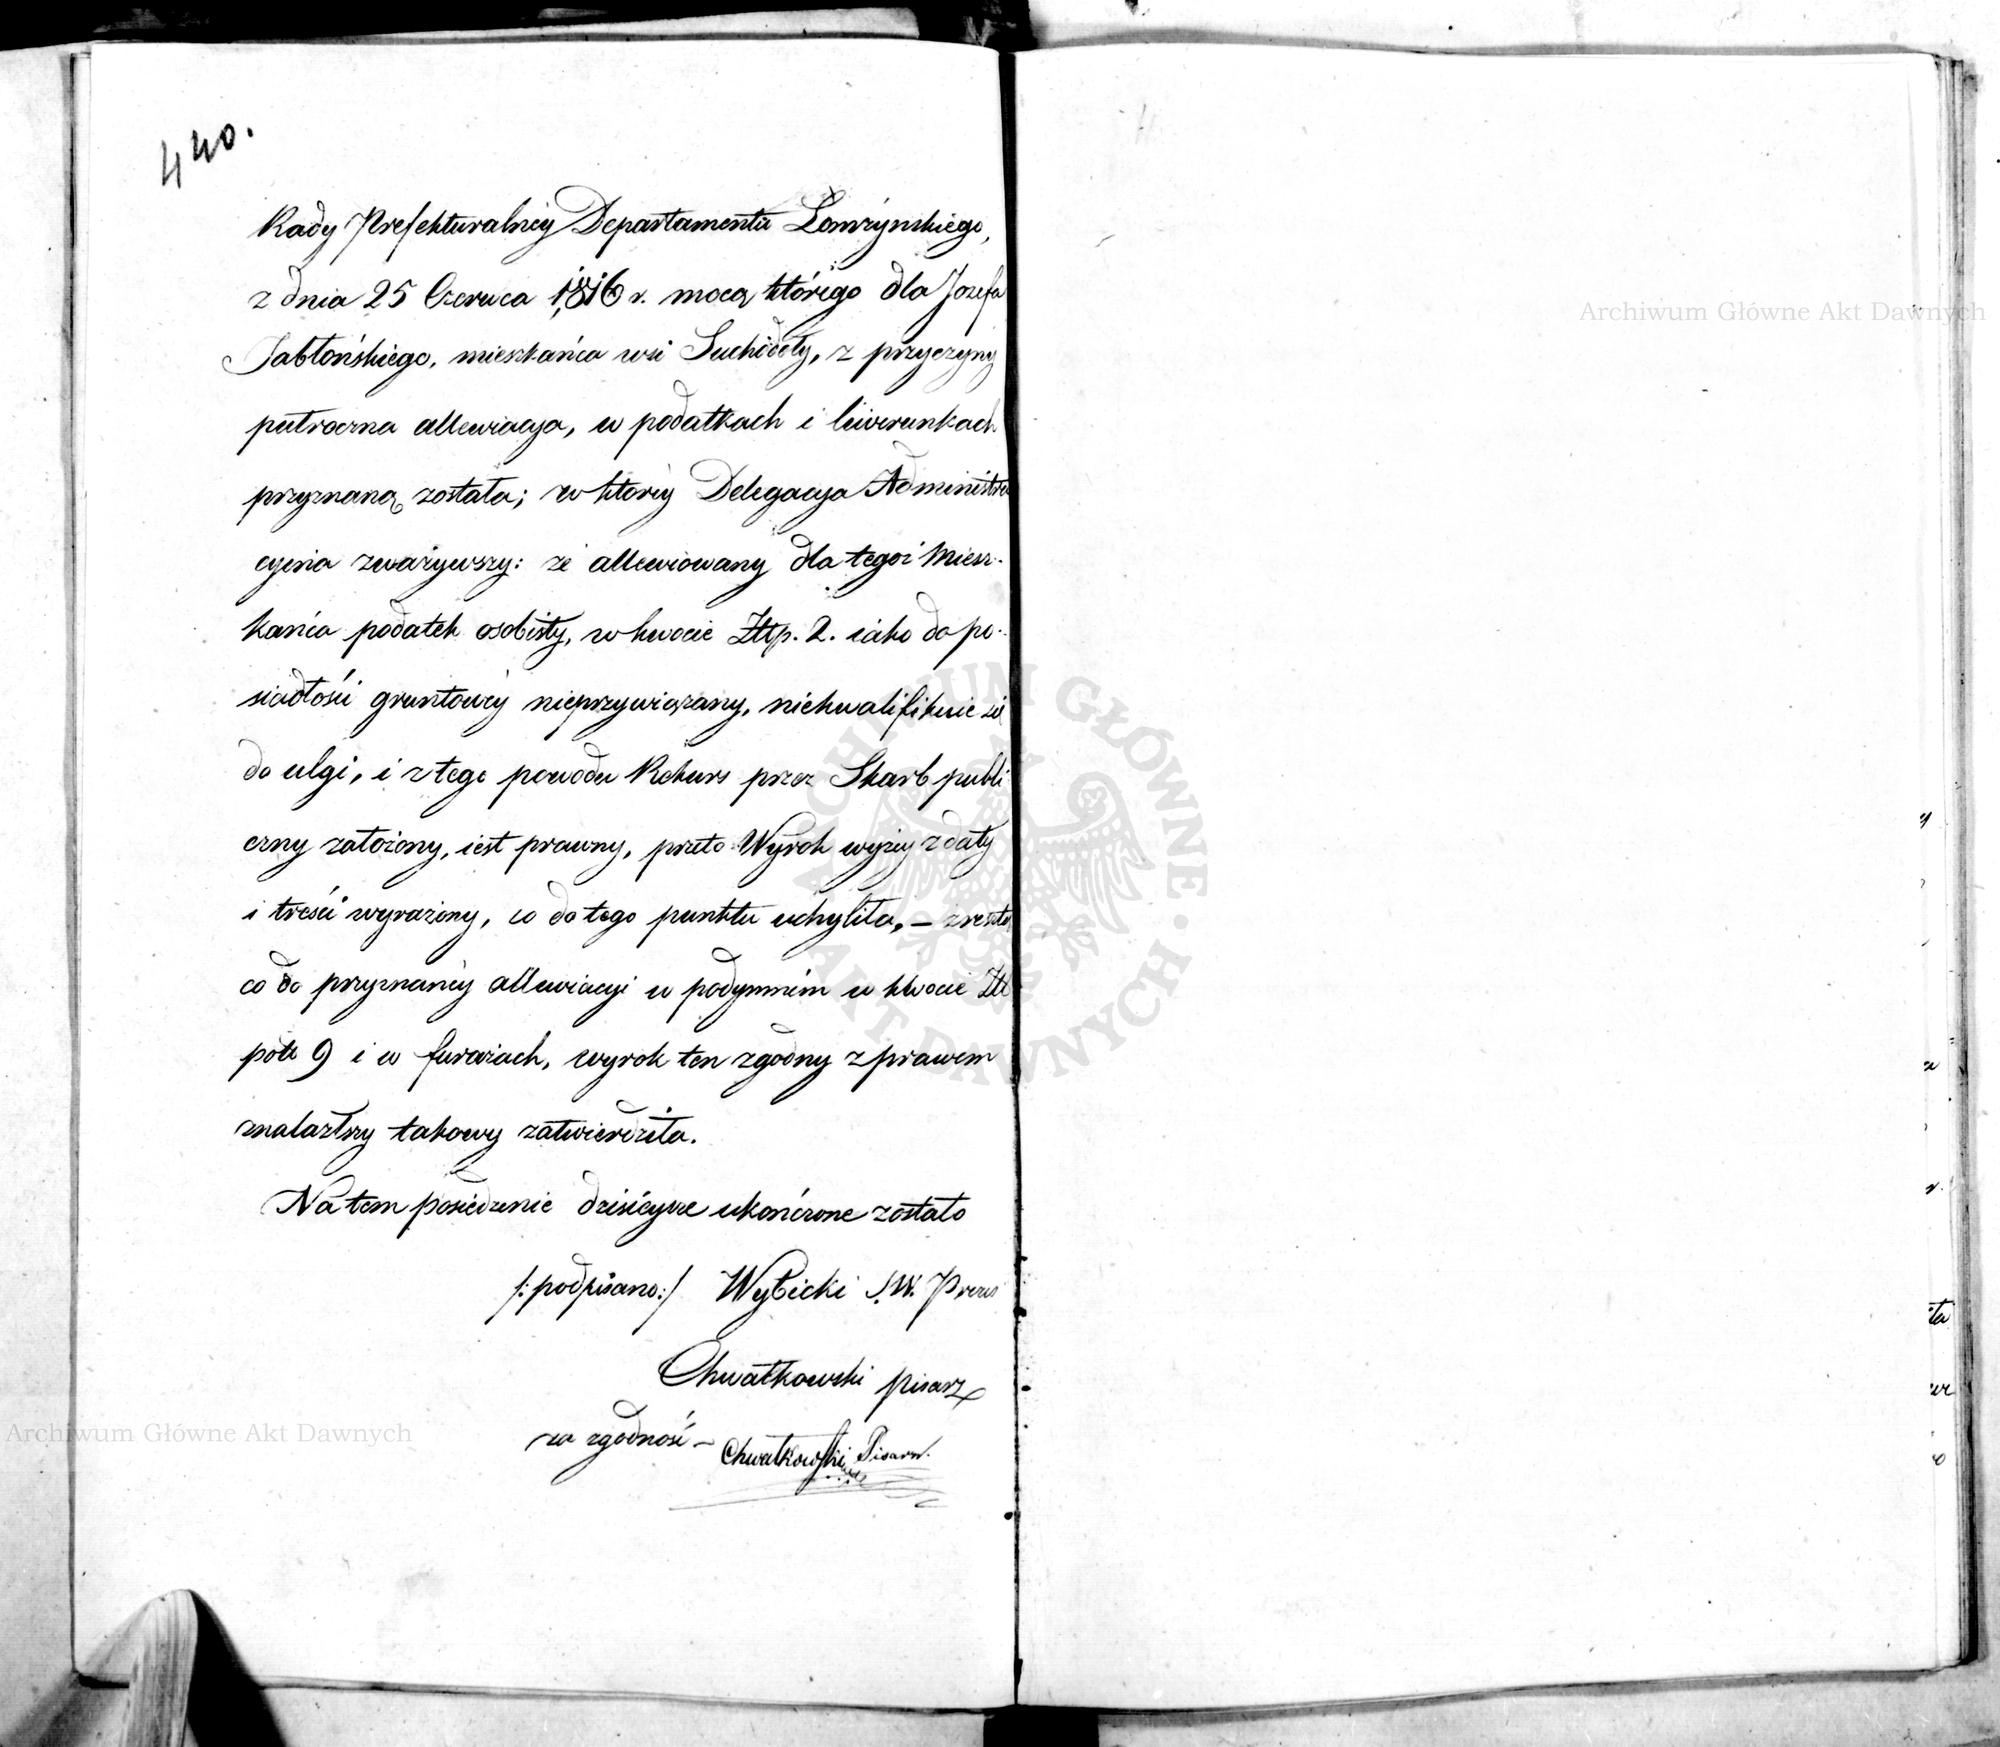 440.
Rady Prefekturalnéy Departamentu Łomżyńskiego,
z dnia 25 Czerwca 1816 r. mocą którego dla Jozefa
Jabłońskiego, mieszkańca wsi Suchodoły, z przyczyny
pułroczna allewiacya, w podatkach i liwerunkach
przyznaną została; w któréy Delegacya Administra
cyina zważywszy: że allewiowany dla tegoż Miesz-
kańca podatek osobisty, w kwocie Złłp. 2. iako do po-
siadłości gruntowéy nieprzywiązany, niekwalifikuie się
do ulgi, i z tego powodu Rekurs przez Skarb publi
czny założony, iest prawny, przeto Wyrok wyżéy z daty
i treści wyrażony, co do tego punktu uchyliła, – zresztą
co do przyznanéy allewiacyi w podymném w kwocie Złł
pols 9 i w furażach, wyrok ten zgodny z prawem
znalazłszy takowy zatwierdziła.
Na tem posiedzenie dzisieysze ukończone zostało
/: podpisano :/ Wybicki S.W. Prezes
Chwatkowski pisarz
za zgodność – Chwatkowski Pisarz.
Archiwum Główne Akt Dawnych
Archiwum Główne Akt Dawnych
ARCHIWUM GŁÓWNE AKT DAWNYCH